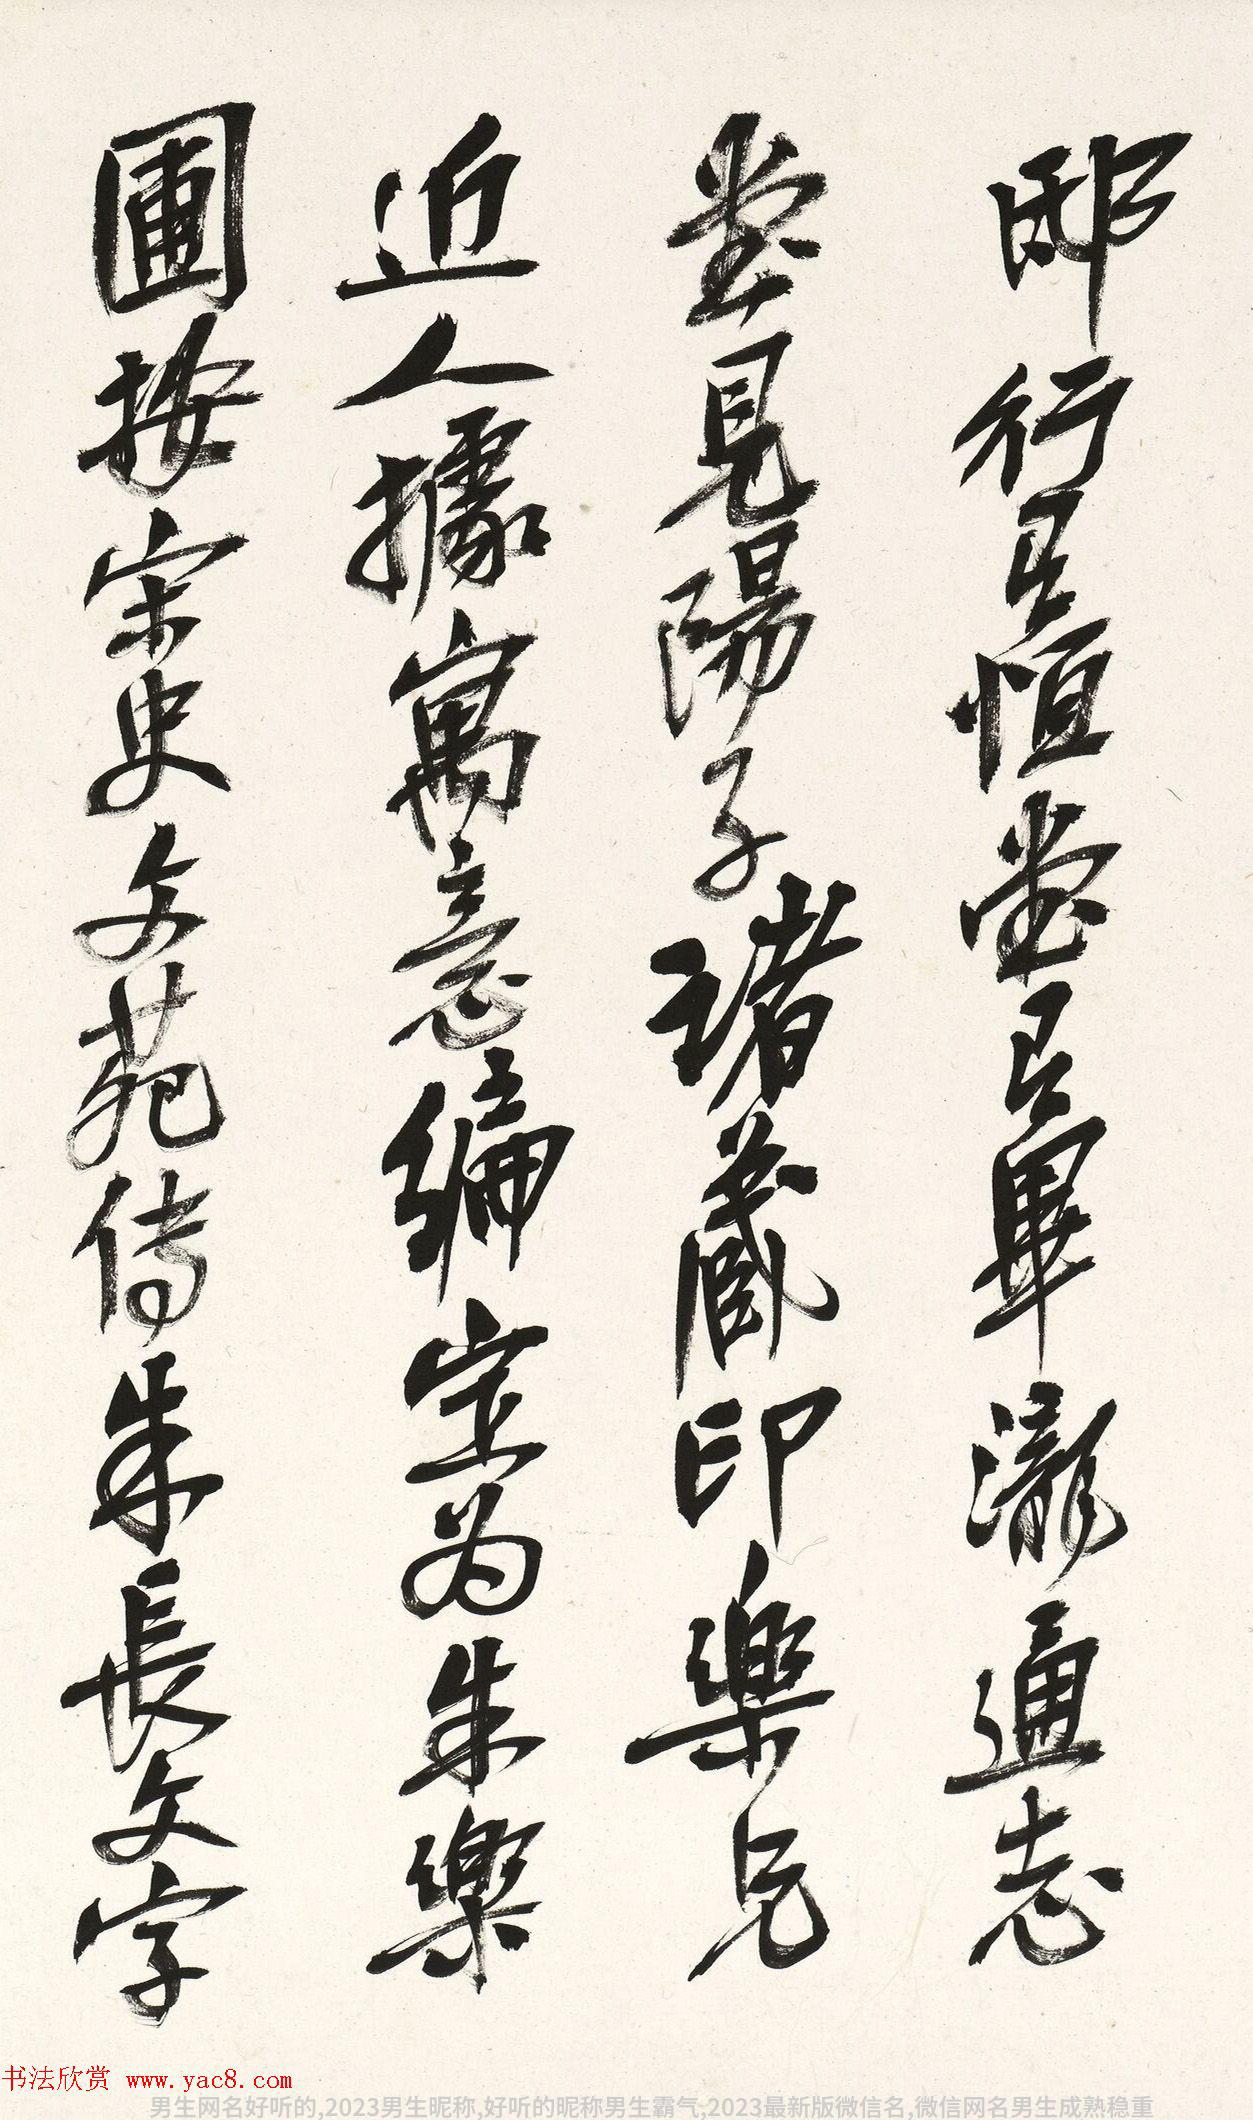 邸行有恒堂有畢瀧通志
堂見陽子珍藏印樂兄
近人據寓意編定为朱樂
圃按宋史文苑傳朱長文字
书法欣赏 www.yac8.com
男生网名好听的,2023男生昵称,好听的昵称男生霸气;2023最新版微信名,微信网名男生成熟稳重